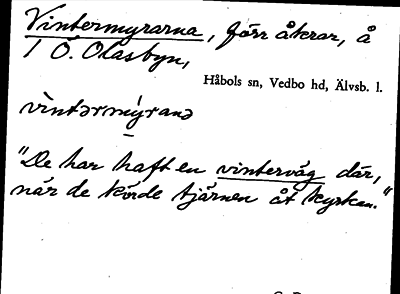 Vintermyrarna, förr åkrar, å
1 Ö. Olasbyn,
Håbols sn, Vedbo hd, Älvsb. l.
vìntərmýranə
"De har haft en vinterväg där,
när de körde tjärnen åt kyrkan."